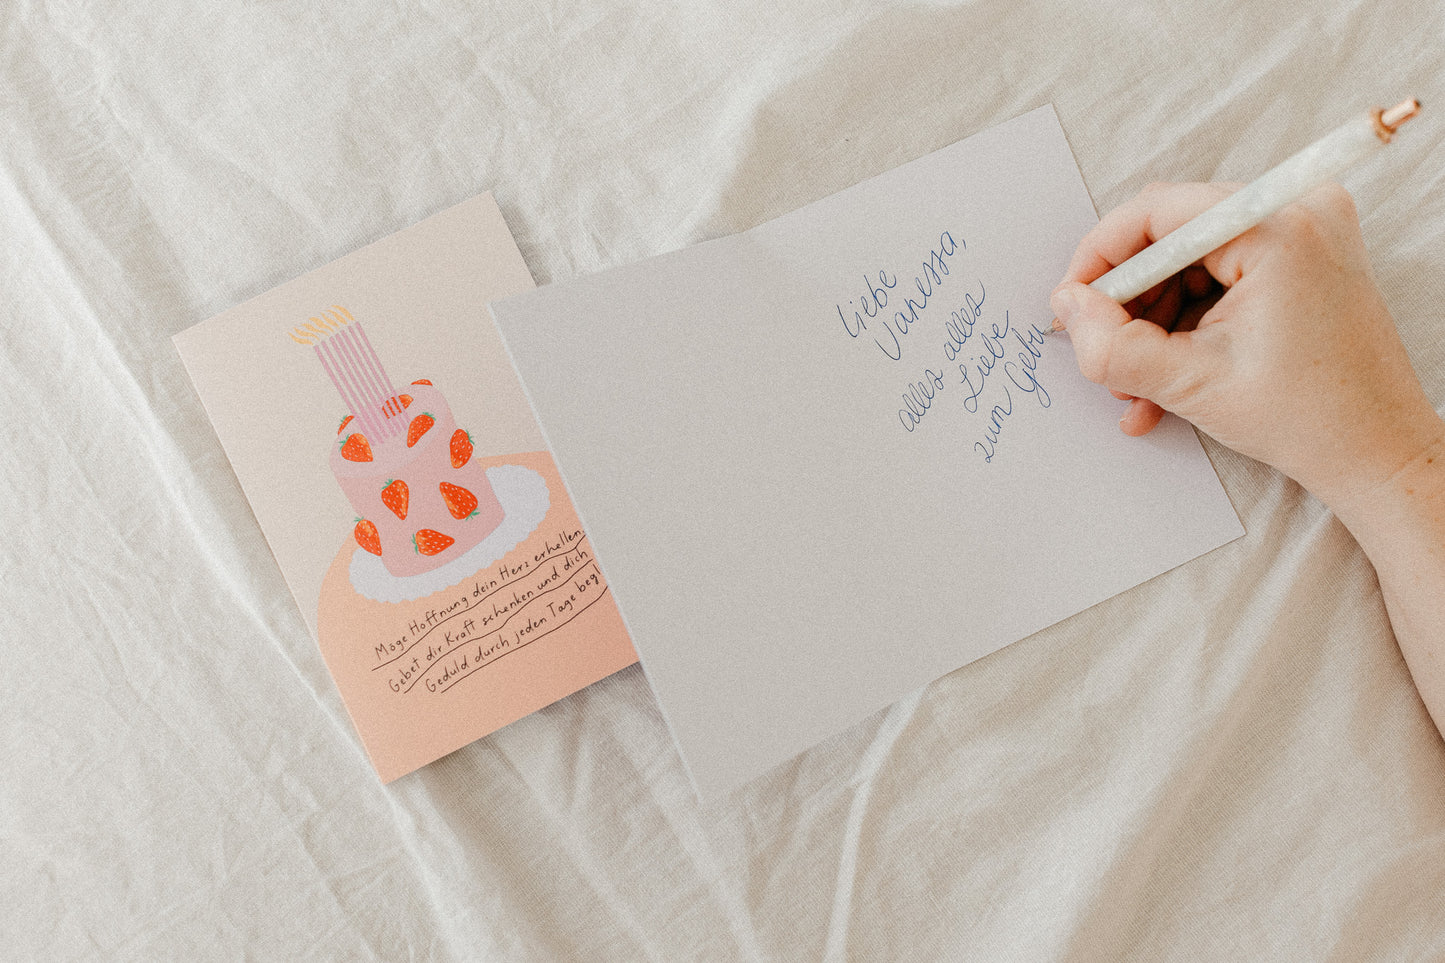 Möge Hoffnung dein Herz erhellen,
Gebet dir Kraft schenken und dich
Geduld durch jeden Tage begl
Liebe
Vanessa,
alles alles
Liebe
zum Gebu